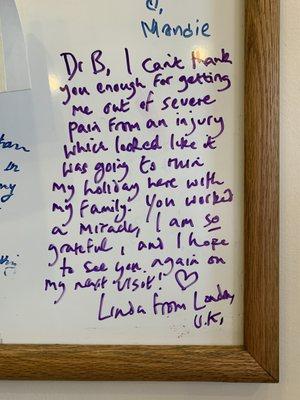 Mandie
Dr B, I can't thank
you enough for getting
me out of severe
pain from an injury
which looked like it
was going to ruin
my holiday here with
my family. You worked
a miracle, I am so
grateful, and I hope
to see you again on
my next visit! ♡
Linda from London,
U.K,
in
my